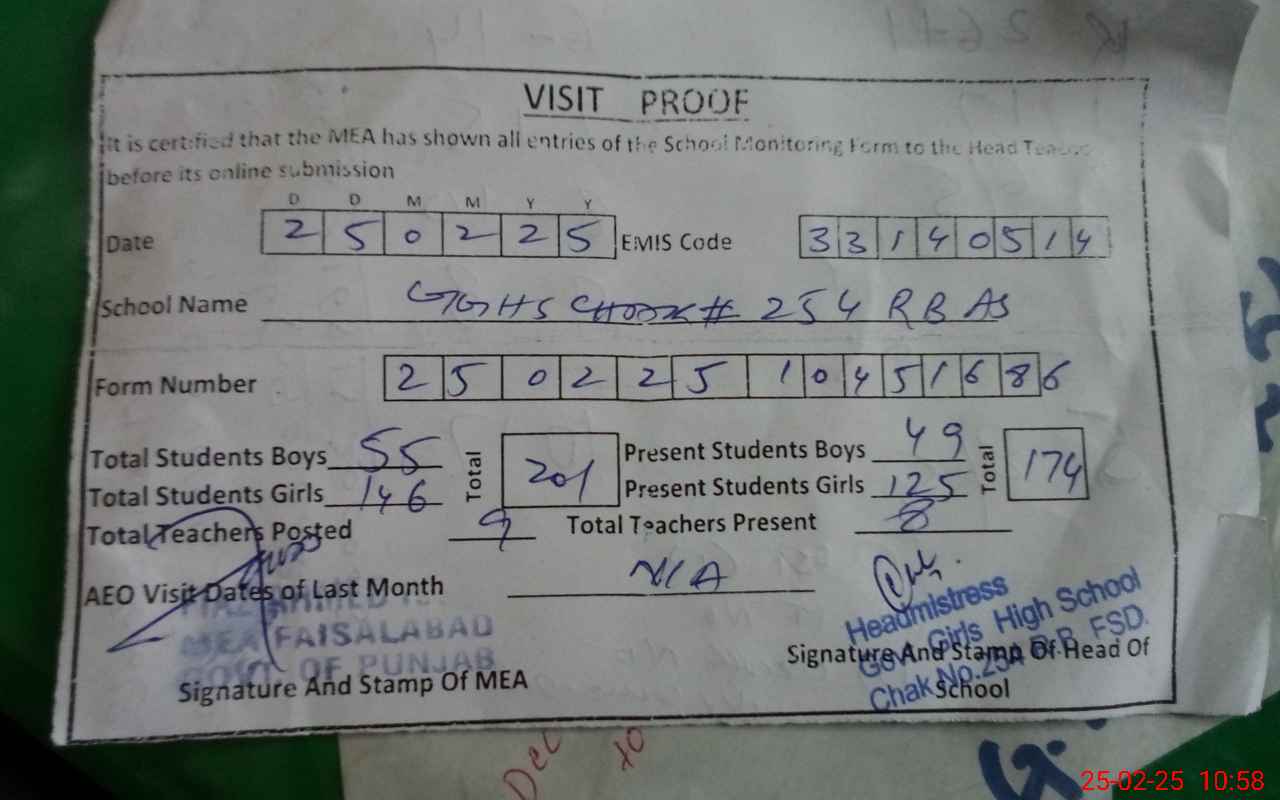 VISIT PROOF
It is certified that the MEA has shown all entries of the School Monitoring Form to the Head
before its online submission
D D M M Y Y
Date 2 5 0 2 2 5 EMIS Code 3 3 1 4 0 5 1 4
School Name GGHS 254 RB
Form Number 2 5 0 2 2 5 1 0 4 5 1 6 8 6
Total Students Boys 55 Total 201 Present Students Boys 49 Total 174
Total Students Girls 146 Present Students Girls 125
Total Teachers Posted 9 Total Teachers Present 8
AEO Visit Dates of Last Month N/A
MEA FAISALABAD
GOVT. OF PUNJAB
Signature And Stamp Of MEA
Headmistress
Govt. Girls High School
Chak No.254 R.B. FSD.
Signature And Stamp Of Head Of
School
Dec
to
25-02-25 10:58